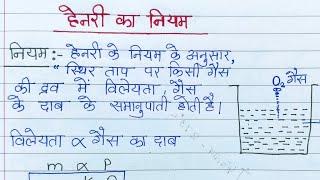 हेनरी का नियम
नियम :- हेनरी के नियम के अनुसार,
"स्थिर ताप पर किसी गैस
की द्रव में विलेयता, गैस
के दाब के समानुपाती होती है।
O₂ गैस
विलेयता ∝ गैस का दाब
m ∝ P